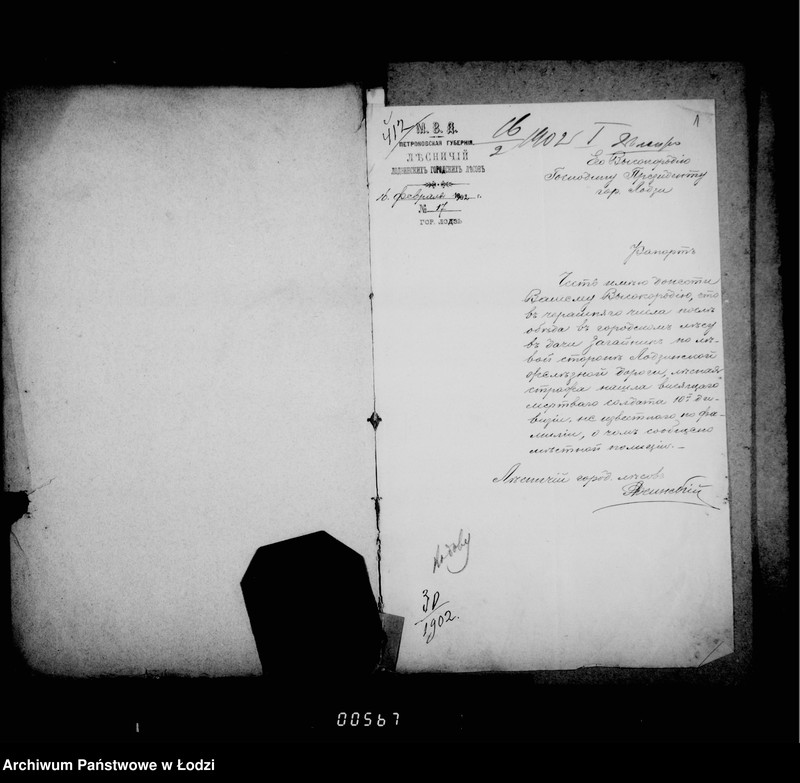 М. В. Д.
ПЕТРОКОВСКАЯ ГУБЕРНІЯ.
ЛѢСНИЧІЙ
ЛОДЗИНСКИХЪ ГОРОДСКИХЪ ЛѢСОВЪ
16 февраля 1902 г.
№ 17
ГОР. ЛОДЗЬ
417
16/2 1902 I
1
Его Высокородію
Господину Президенту
гор. Лодзи
Рапортъ
Честь имѣю донести
Вашему Высокородію, что
вчерашняго числа послѣ
обѣда въ городскомъ лѣсу
въ дачи Загайник по лѣ-
вой сторонѣ Лодзинской
желѣзной дороги, лѣсная
стража нашла висящаго
мертваго солдата 10й ди-
визіи, не извѣстнаго по фа-
миліи, о чемъ сообщено
мѣстной полиціи.
Лѣсничій город. лѣсовъ
30/1902.
00567
Archiwum Państwowe w Łodzi